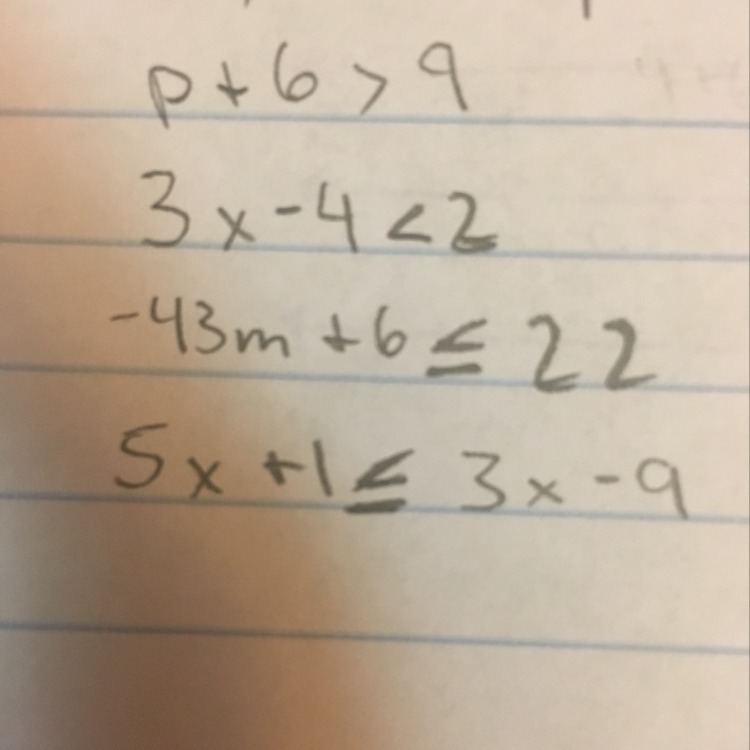 p + 6 > 9
3x - 4 < 2
-43m + 6 ≤ 22
5x + 1 ≤ 3x - 9